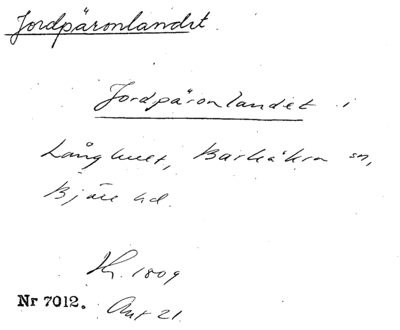 Jordpäronlandet.
Jordpäronlandet i
Långhult, Barkåkra sn,
Bjäre hd.
Kt. 1809
Nr 7012. Akt 21.